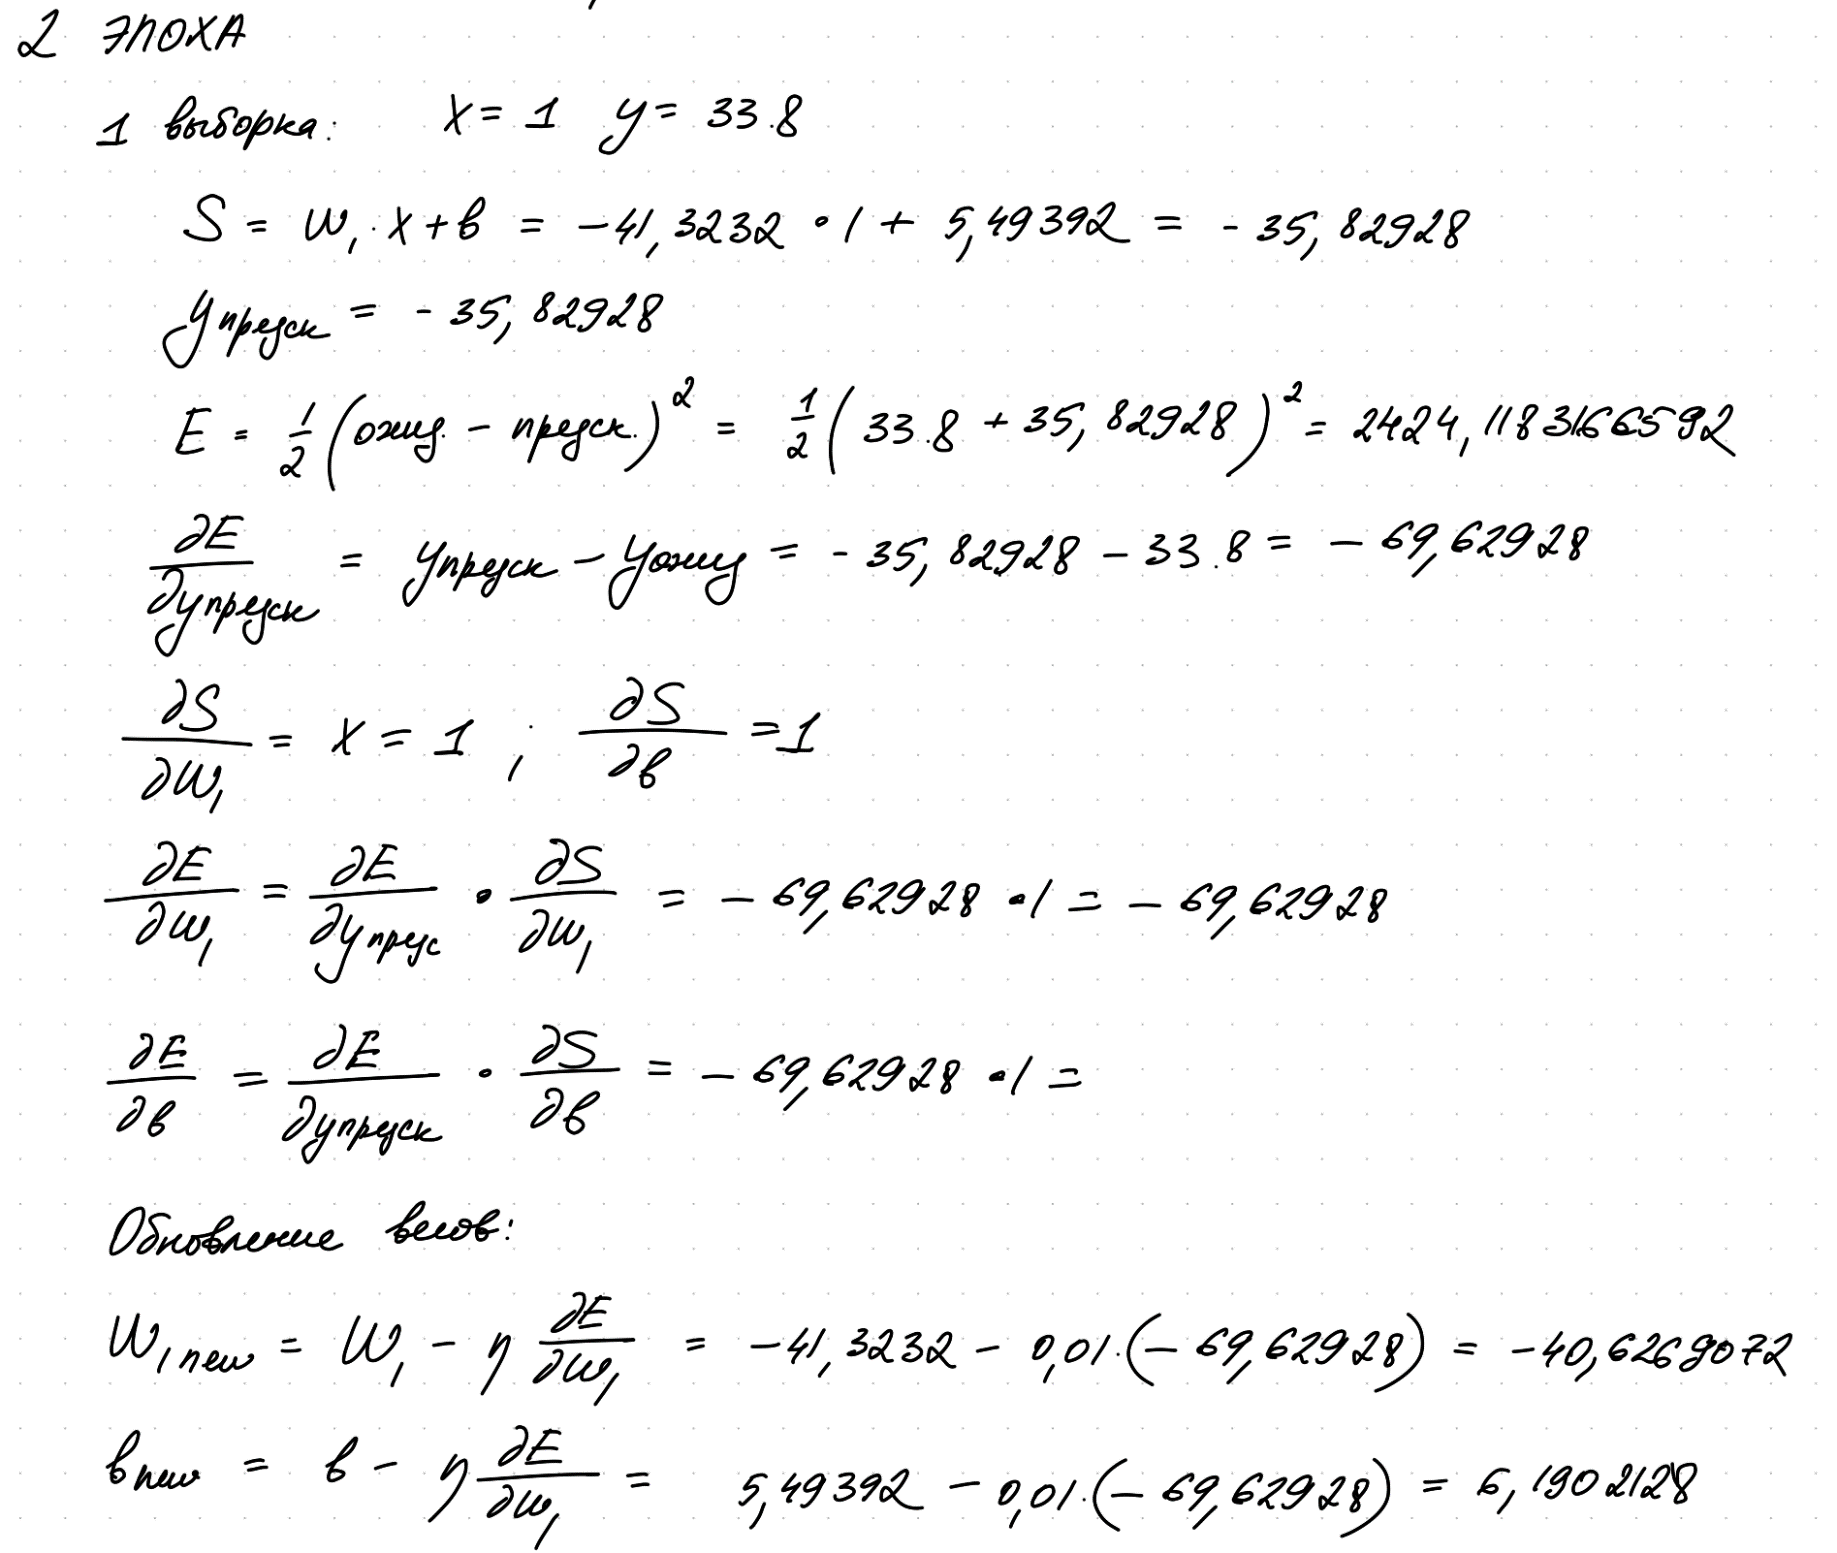 2 ЭПОХА
1 выборка: X = 1 y = 33.8
S = W₁ · X + в = -41,3232 · 1 + 5,49392 = -35,82928
yпредск = -35,82928
E = 1/2 (ожид. - предск.)² = 1/2 (33.8 + 35,82928)² = 2424,1183166592
∂E/∂yпредск = yпредск - yожид = -35,82928 - 33.8 = -69,62928
∂S/∂W₁ = X = 1 ; ∂S/∂в = 1
∂E/∂W₁ = ∂E/∂yпредс · ∂S/∂W₁ = -69,62928 · 1 = -69,62928
∂E/∂в = ∂E/∂yпредск · ∂S/∂в = -69,62928 · 1 =
Обновление весов:
W₁ new = W₁ - η ∂E/∂W₁ = -41,3232 - 0,01 · (-69,62928) = -40,6269072
в new = в - η ∂E/∂W₁ = 5,49392 - 0,01 · (-69,62928) = 6,1902128